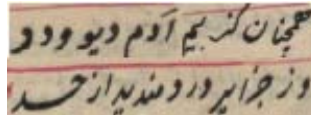 همچنان کز بیم آدم دیو و دد
در جزایر در رمیدند از حسد